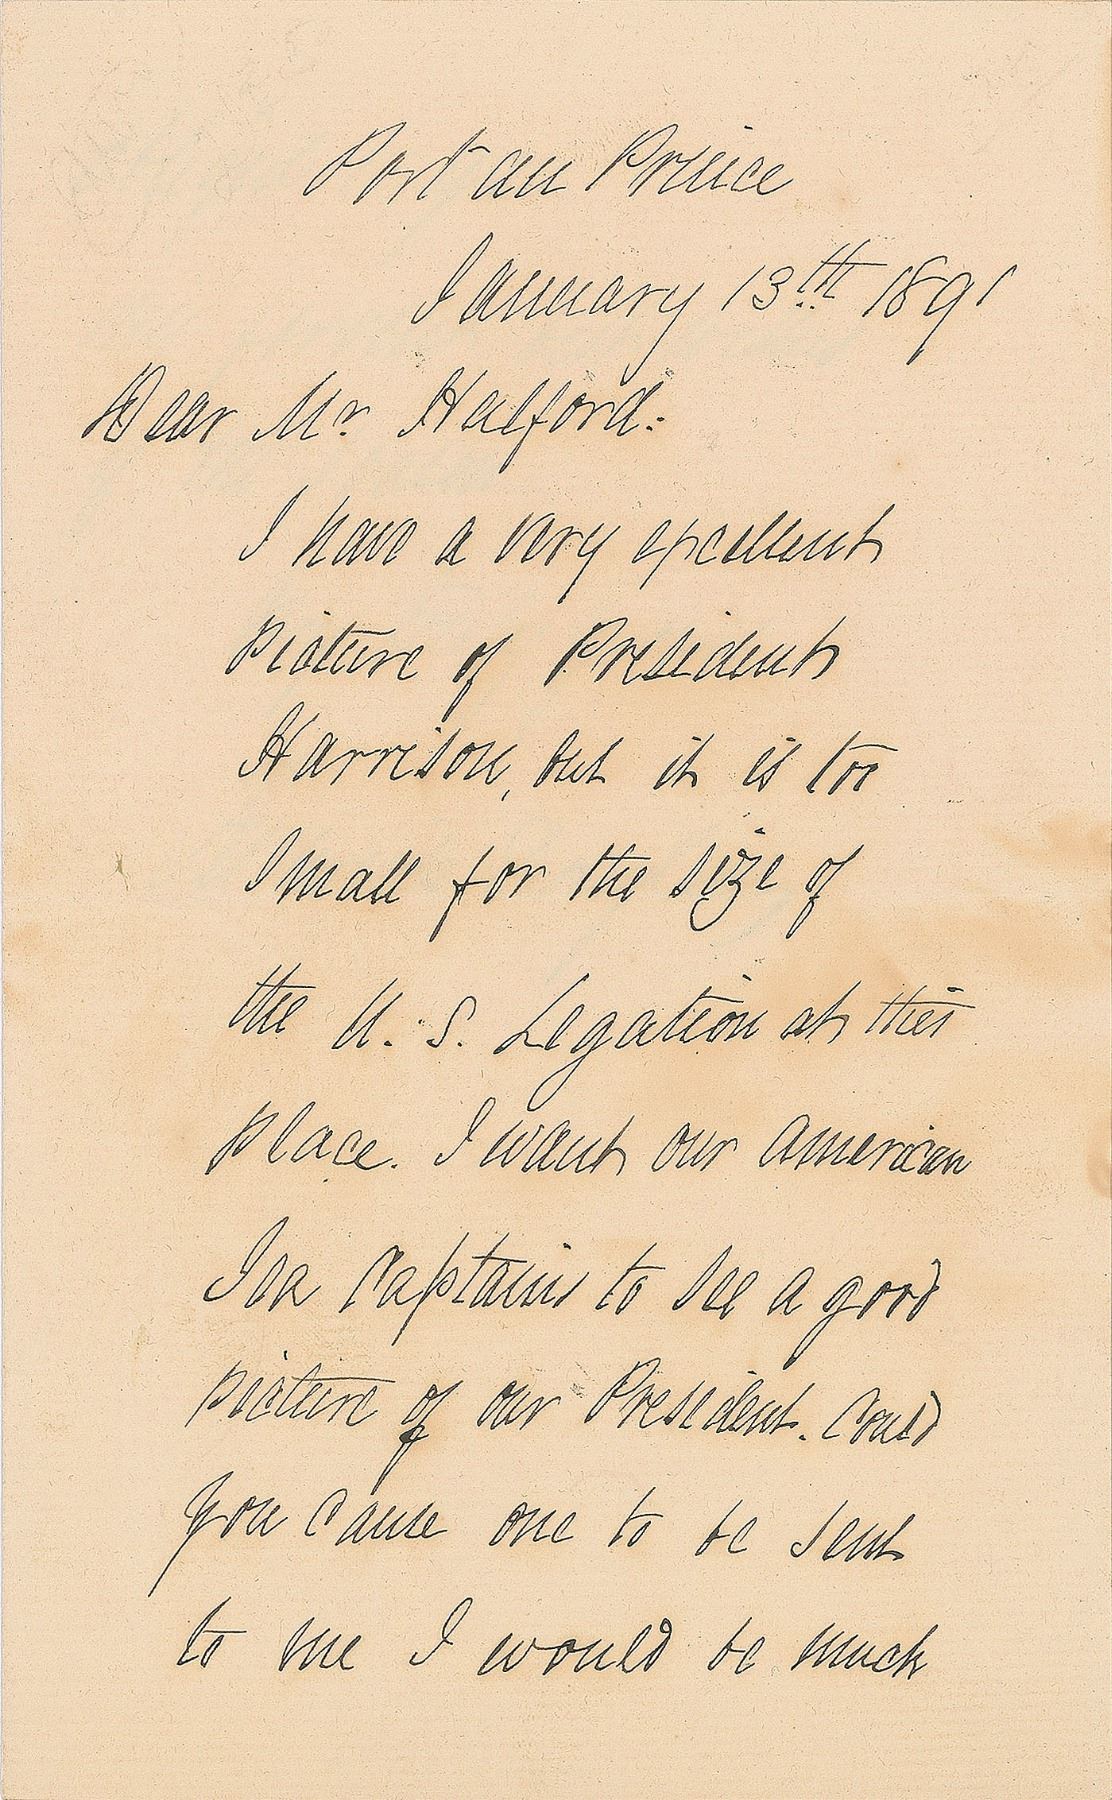 Port au Prince
January 13th 1891
Dear Mr. Halford:
I have a very excellent
picture of President
Harrison, but it is too
small for the size of
the U. S. Legation at this
place. I want our American
Sea Captains to see a good
picture of our President. Could
you cause one to be sent
to me I would be much